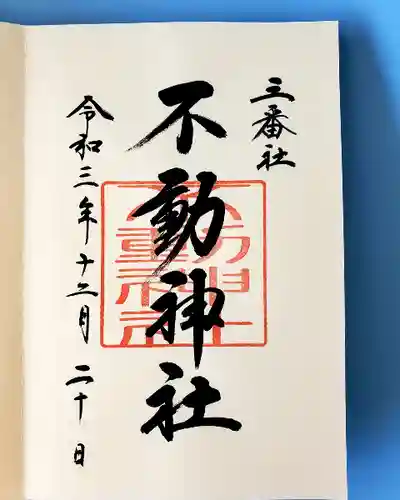 三番社
不動神社
不動神社
令和三年十二月二十日